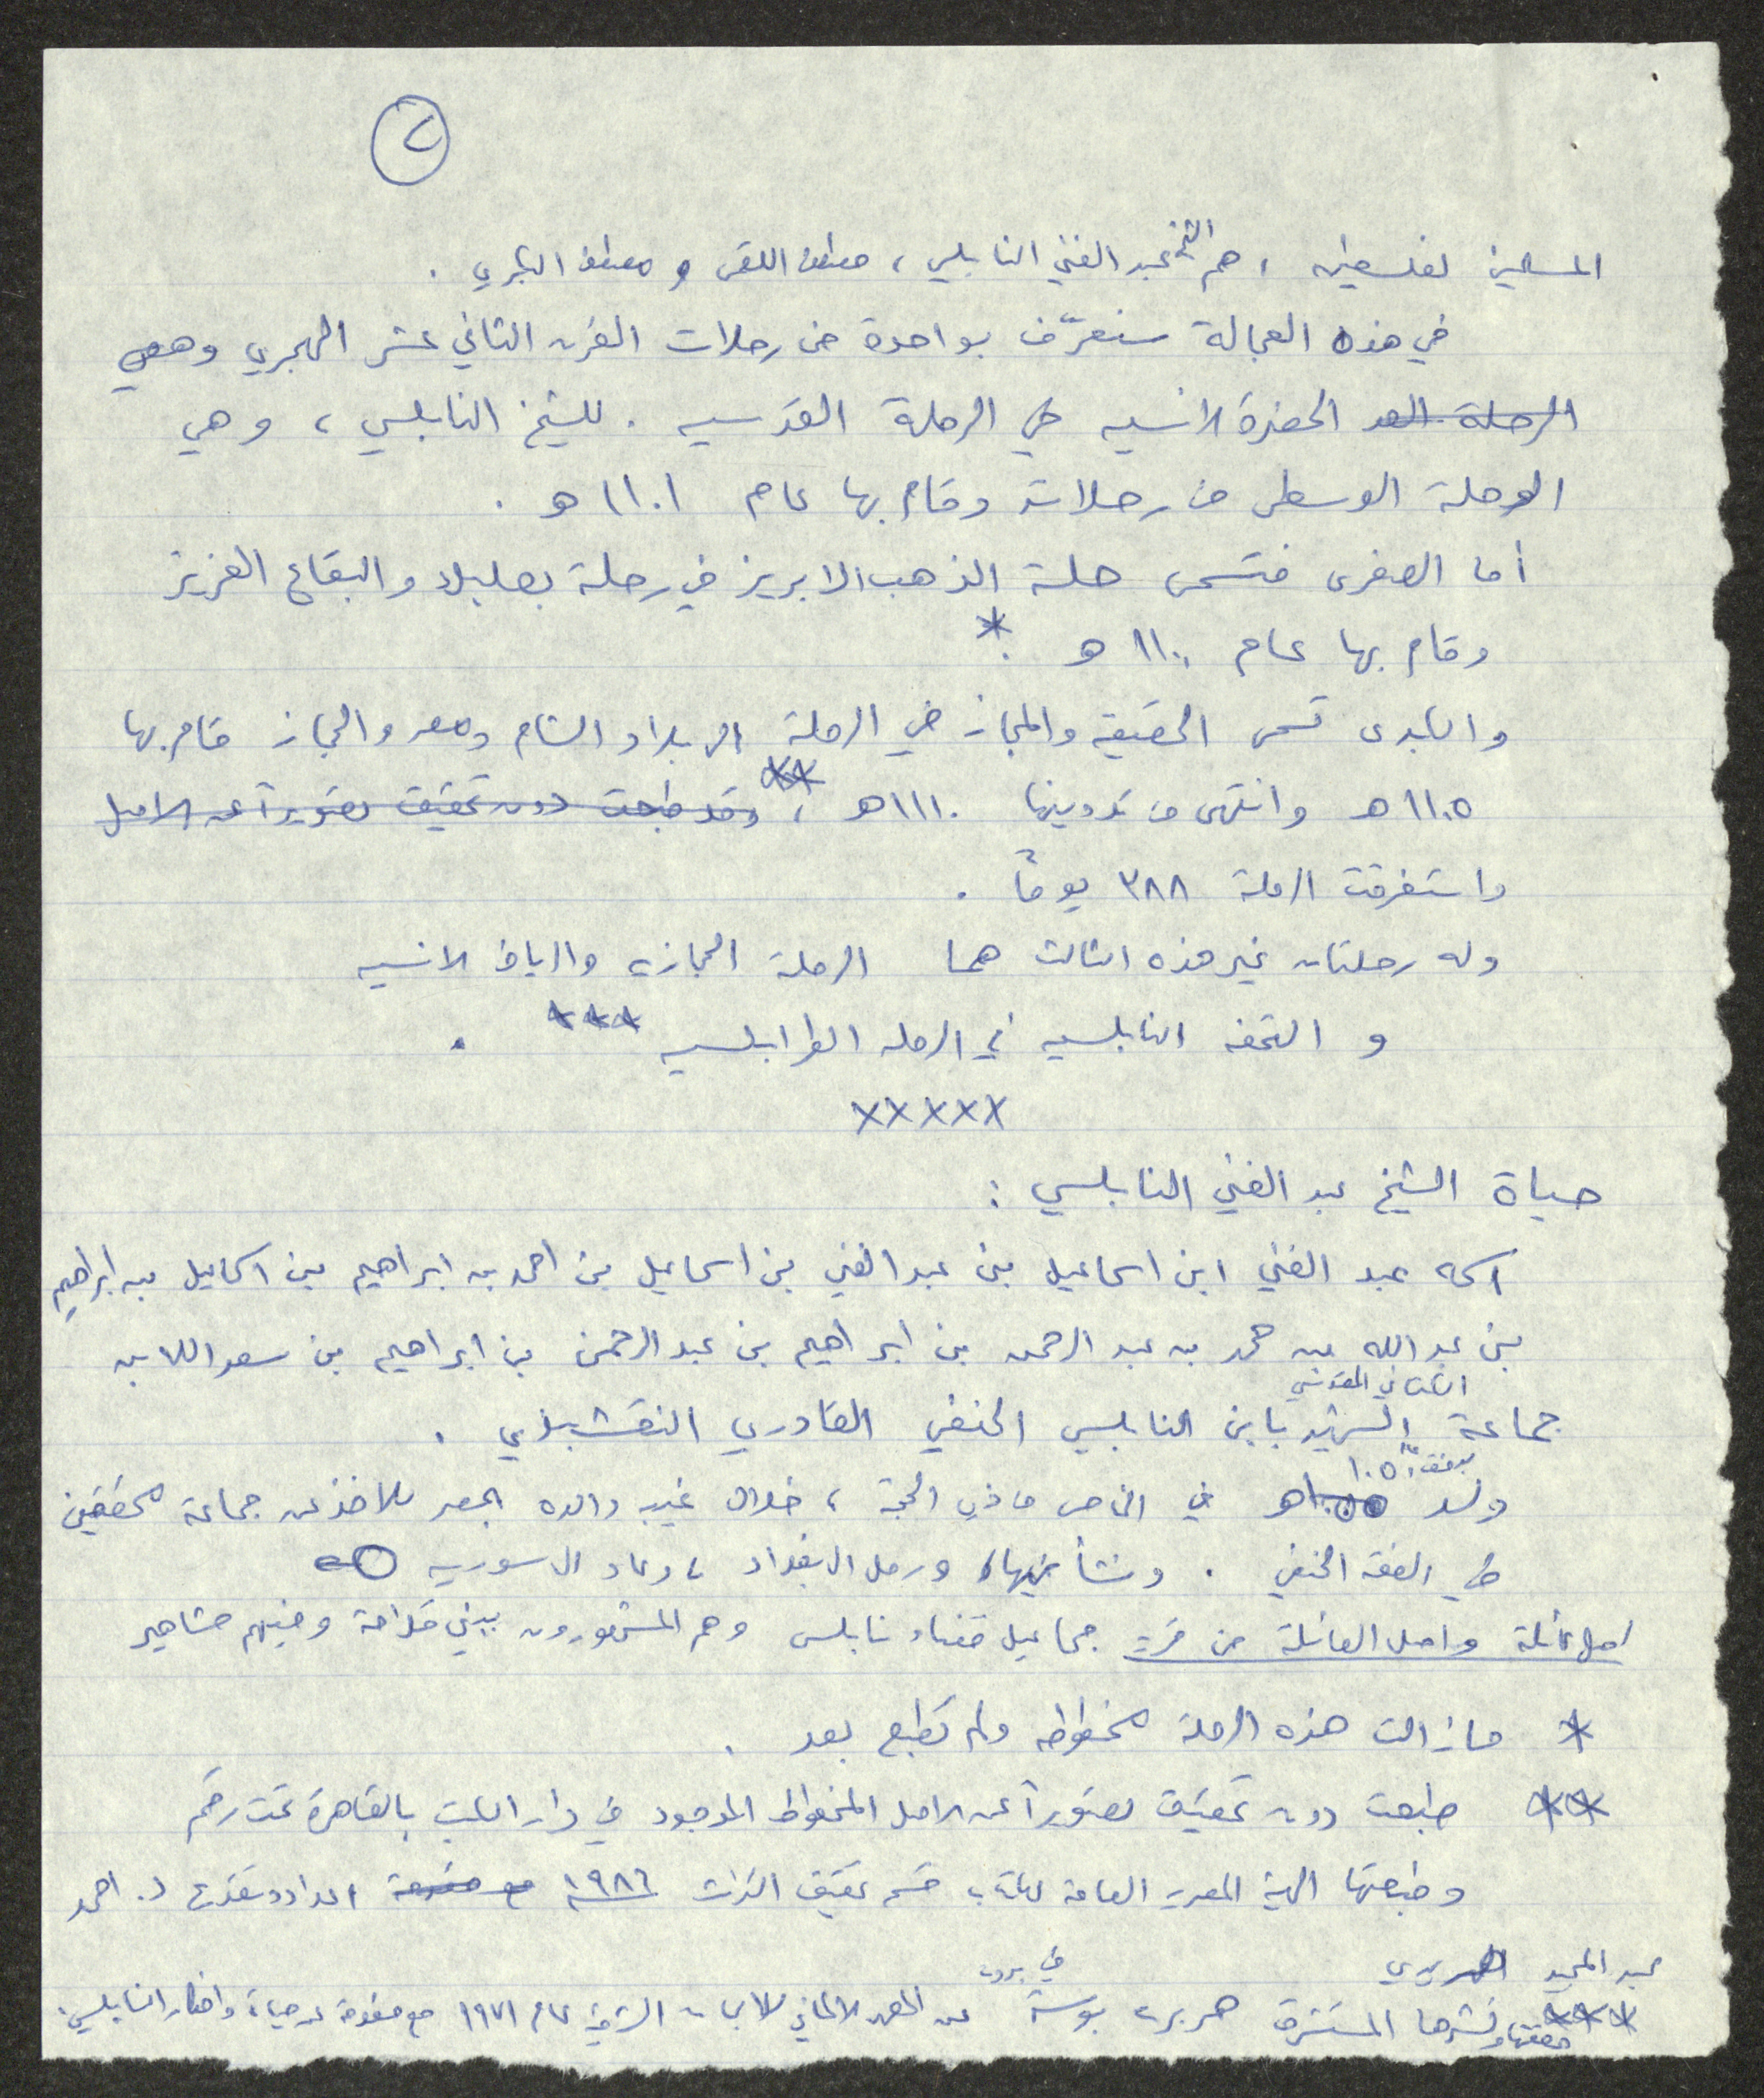 ٢
المسلمين لفلسطين ، هم الشيخ عبد الغني النابلسي ، مصطفى اللقيمي ومصطفى البكري .
في هذه العجالة سنعرّف بواحدة من رحلات القرن الثاني عشر الهجري وهي
الرحلة الحضرة الانسيه في الرحلة القدسيه . للشيخ النابلسي ، وهي
الرحلة الوسطى من رحلاته وقام بها عام ١١٠١ هـ .
أما الصغرى فتسمى حلة الذهب الابريز في رحلة بعلبك والبقاع العزيز
وقام بها عام ١١٠٠ هـ . *
والكبرى تسمى الحقيقه والمجاز في الرحلة الى بلاد الشام ومصر والحجاز قام بها
١١٠٥ هـ وانتهى من تدوينها ١١١٠ هـ ، ** وقد طبعت دون تحقيق تصويراً عن الاصل
واستغرقت الرحلة ٣٨٨ يوماً .
وله رحلتان غير هذه الثلاث هما الرحلة الحجازيه والرياض الانسيه
و التحفه النابلسيه في الرحله الطرابلسيه *** .
×××××
حياة الشيخ عبد الغني النابلسي :
اسمه عبد الغني ابن اسماعيل بن عبد الغني بن اسماعيل بن احمد بن ابراهيم بن اسماعيل بن ابراهيم
بن عبد الله بن محمد بن عبد الرحمن بن ابراهيم بن عبد الرحمن بن ابراهيم بن سعد الله بن
الكناني المقدسي
جماعة الشهير بابن النابلسي الحنفي القادري النقشبندي .
بدمشق ١٠٥٠
ولد هـ في الخامس من ذي الحجة ، خلال غيبة والده بمصر للاخذ عن جماعة محققين
في الفقه الحنفي . ونشأ فيها ورحل الى بغداد ، وعاد الى سوريه
اصل عائلة واصل العائلة من قرية جماعيل قضاء نابلس وهم المشهورون ببني قدامة ومنهم مشاهير
* مازالت هذه الرحلة مخطوطه ولم تطبع بعد .
** طبعت دون تحقيق تصويراً عن الاصل المخطوط الموجود في دار الكتب بالقاهرة تحت رقم
وطبعتها الهيئة المصرية العامة للكتاب قسم تحقيق التراث ١٩٨٦ مع مقدمة اعداد وتقديم د. احمد
عبد المجيد الهريدي
*** حققها ونشرها المستشرق هربرت بوسة في بيروت عن المعهد الالماني للابحاث الشرقية عام ١٩٧١ مع مقدمة عن حياة وافكار النابلسي .